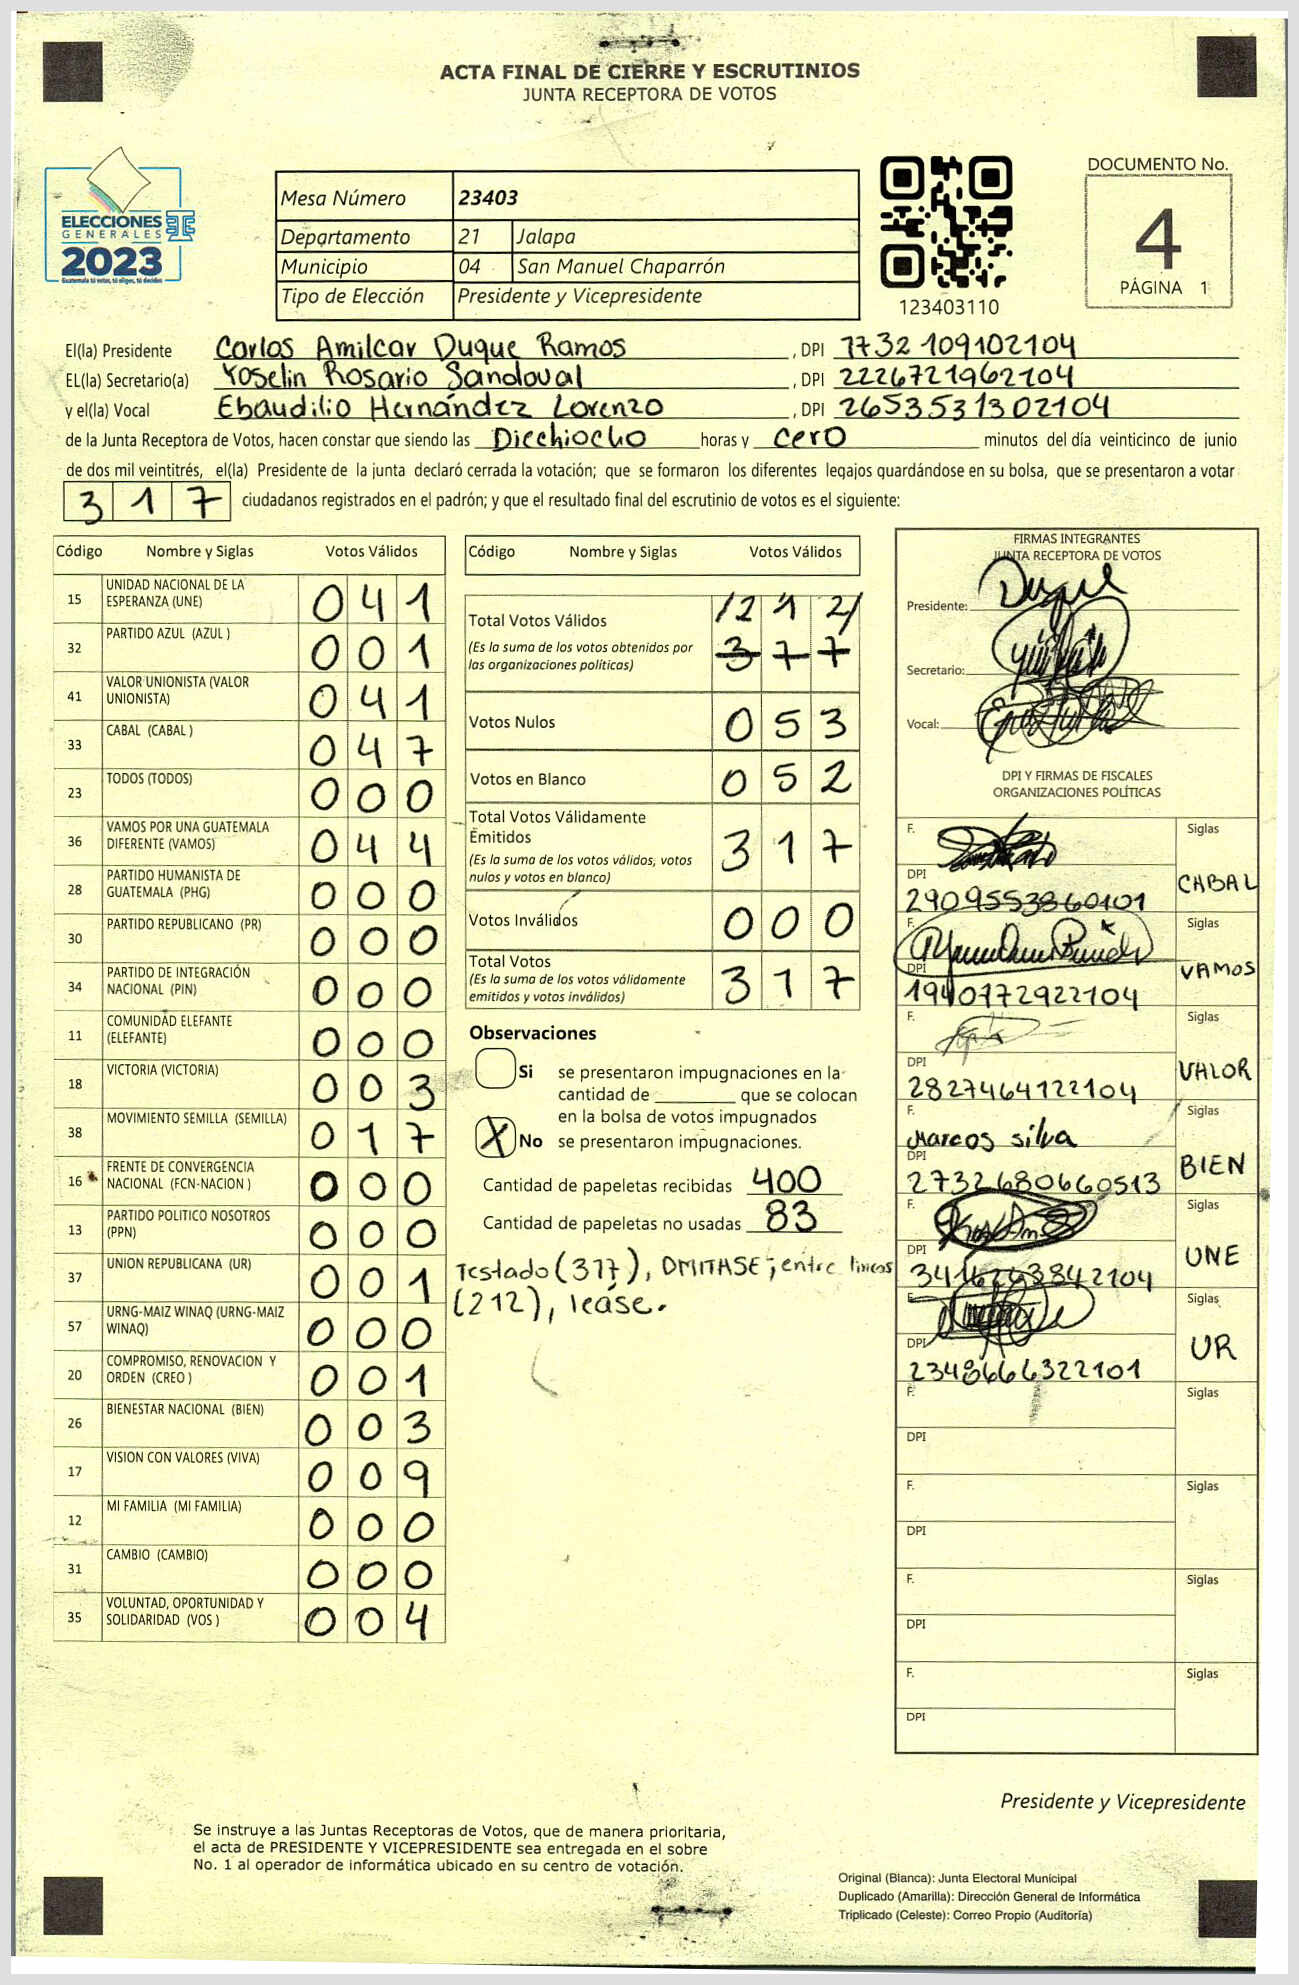 ACTA FINAL DE CIERRE Y ESCRUTINIOS
JUNTA RECEPTORA DE VOTOS
ELECCIONES
GENERALES
2023
Guatemala tú votas, tú eliges, tú decides
Mesa Número 23403
Departamento 21 Jalapa
Municipio 04 San Manuel Chaparrón
Tipo de Elección Presidente y Vicepresidente
123403110
DOCUMENTO No.
4
PÁGINA 1
El(la) Presidente Carlos Amilcar Duque Ramos , DPI 1732109102104
EL(la) Secretario(a) Yoselin Rosario Sandoval , DPI 2226721962104
y el(la) Vocal Ebaudilio Hernández Lorenzo , DPI 2653531302104
de la Junta Receptora de Votos, hacen constar que siendo las Diechiocho horas y cero minutos del día veinticinco de junio
de dos mil veintitrés, el(la) Presidente de la junta declaró cerrada la votación; que se formaron los diferentes legajos guardándose en su bolsa, que se presentaron a votar
317 ciudadanos registrados en el padrón; y que el resultado final del escrutinio de votos es el siguiente:
Código Nombre y Siglas Votos Válidos
15 UNIDAD NACIONAL DE LA ESPERANZA (UNE) 041
32 PARTIDO AZUL (AZUL ) 001
41 VALOR UNIONISTA (VALOR UNIONISTA) 041
33 CABAL (CABAL ) 047
23 TODOS (TODOS) 000
36 VAMOS POR UNA GUATEMALA DIFERENTE (VAMOS) 044
28 PARTIDO HUMANISTA DE GUATEMALA (PHG) 000
30 PARTIDO REPUBLICANO (PR) 000
34 PARTIDO DE INTEGRACIÓN NACIONAL (PIN) 000
11 COMUNIDAD ELEFANTE (ELEFANTE) 000
18 VICTORIA (VICTORIA) 003
38 MOVIMIENTO SEMILLA (SEMILLA) 017
16 FRENTE DE CONVERGENCIA NACIONAL (FCN-NACION ) 000
13 PARTIDO POLITICO NOSOTROS (PPN) 000
37 UNION REPUBLICANA (UR) 001
57 URNG-MAIZ WINAQ (URNG-MAIZ WINAQ) 000
20 COMPROMISO, RENOVACION Y ORDEN (CREO ) 001
26 BIENESTAR NACIONAL (BIEN) 003
17 VISION CON VALORES (VIVA) 009
12 MI FAMILIA (MI FAMILIA) 000
31 CAMBIO (CAMBIO) 000
35 VOLUNTAD, OPORTUNIDAD Y SOLIDARIDAD (VOS ) 004
Código Nombre y Siglas Votos Válidos
Total Votos Válidos /212/
(Es la suma de los votos obtenidos por las organizaciones políticas) 377
Votos Nulos 053
Votos en Blanco 052
Total Votos Válidamente Emitidos 317
(Es la suma de los votos válidos, votos nulos y votos en blanco)
Votos Inválidos 000
Total Votos 317
(Es la suma de los votos válidamente emitidos y votos inválidos)
Observaciones
Si se presentaron impugnaciones en la
cantidad de ________ que se colocan
en la bolsa de votos impugnados
X No se presentaron impugnaciones.
Cantidad de papeletas recibidas 400
Cantidad de papeletas no usadas 83
Testado (377), OMITASE; entre lineas
(212), léase.
FIRMAS INTEGRANTES
JUNTA RECEPTORA DE VOTOS
Presidente: Duque
Secretario:
Vocal:
DPI Y FIRMAS DE FISCALES
ORGANIZACIONES POLÍTICAS
F. Siglas
DPI 2909553860101 CABAL
F. Siglas
DPI 1940772922104 VAMOS
F. Siglas
DPI 2827464122104 VALOR
F. Marcos Silva Siglas
DPI 2732680660513 BIEN
F. Siglas
DPI 3416263842104 UNE
F. Siglas
DPI 2348666322101 UR
F. Siglas
DPI
F. Siglas
DPI
F. Siglas
DPI
F. Siglas
DPI
Presidente y Vicepresidente
Se instruye a las Juntas Receptoras de Votos, que de manera prioritaria,
el acta de PRESIDENTE Y VICEPRESIDENTE sea entregada en el sobre
No. 1 al operador de informática ubicado en su centro de votación.
Original (Blanca): Junta Electoral Municipal
Duplicado (Amarilla): Dirección General de Informática
Triplicado (Celeste): Correo Propio (Auditoría)